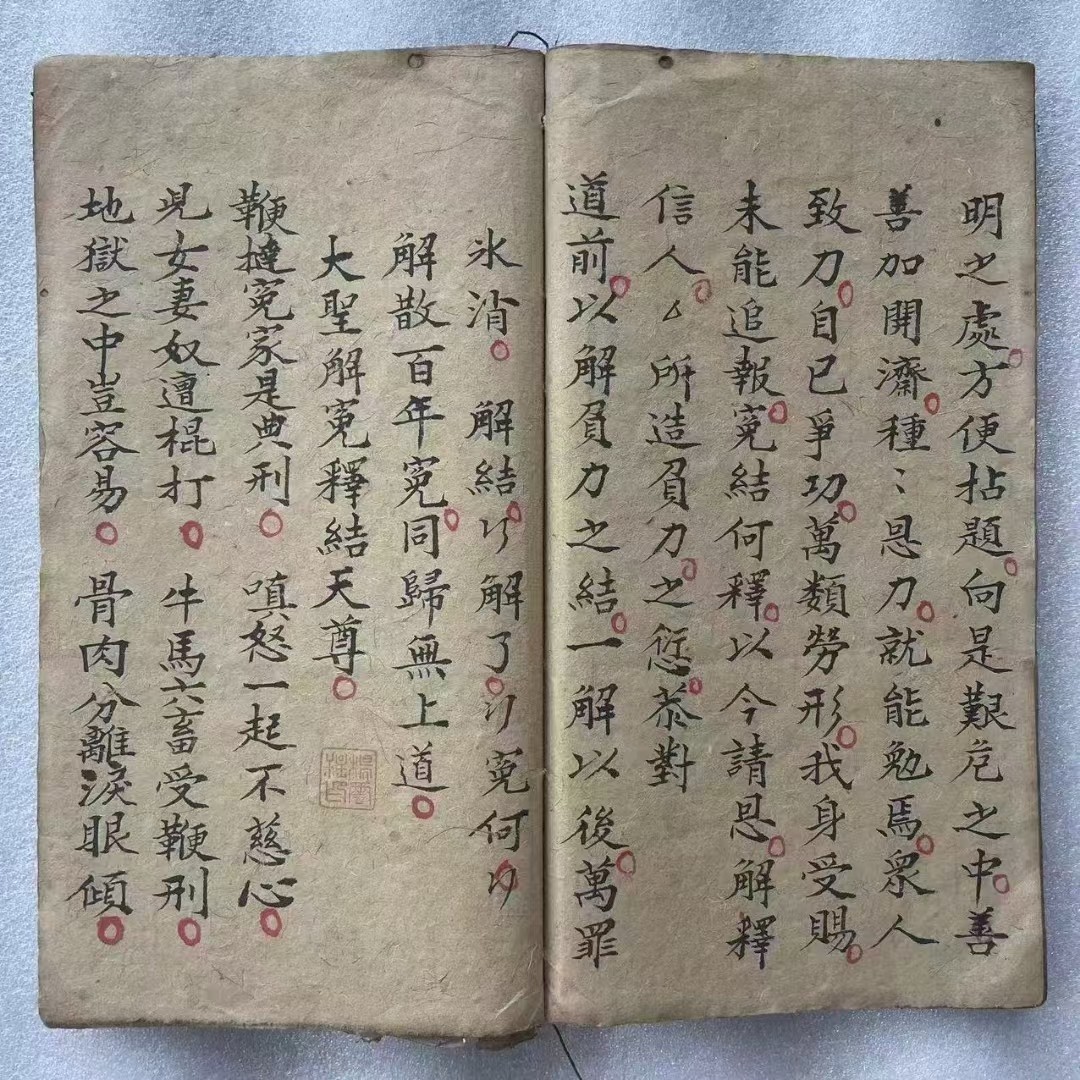 明之處方便拈題向是艱危之中善
善加開濟種〻恩力就能勉焉衆人
致力自已爭功萬類勞形我身受賜
未能追報寃結何釋以今請恩解釋
信人厶所造負力之愆恭對
道前以解負力之結一解以後萬罪
氷消解結〻解了〻寃何〻
解散百年寃同歸無上道
大聖解寃釋結天尊
鞭撻寃家是典刑嗔怒一起不慈心
児女妻奴遭棍打牛馬六畜受鞭刑
地獄之中豈容易骨肉分離淚眼傾